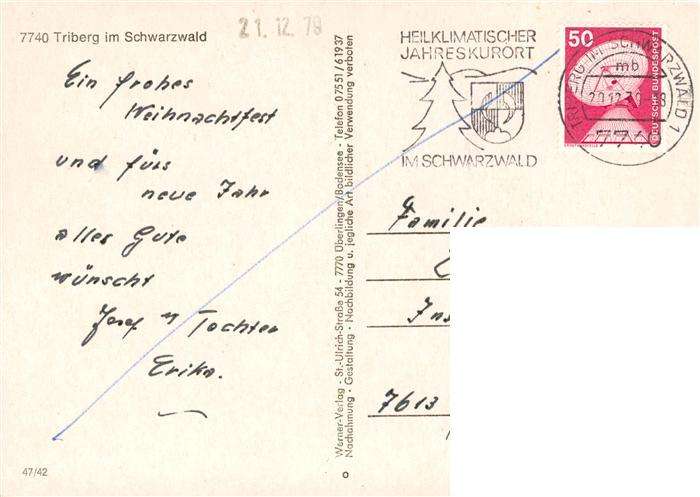 7740 Triberg im Schwarzwald
21.12.79
Ein frohes
Weihnachtfest
und fürs
neue Jahr
alles Gute
wünscht
Josef u Tochter
Erika.
47/42
Werner-Verlag · St.-Ulrich-Straße 54 - 7770 Überlingen/Bodensee - Telefon 07551/61937
Nachahmung · Gestaltung · Nachbildung u. jegliche Art bildlicher Verwendung verboten
HEILKLIMATISCHER
JAHRESKURORT
IM SCHWARZWALD
50
DEUTSCHE BUNDESPOST
BERG IM SCHWARZWALD 1
mb
7740
Familie
7613